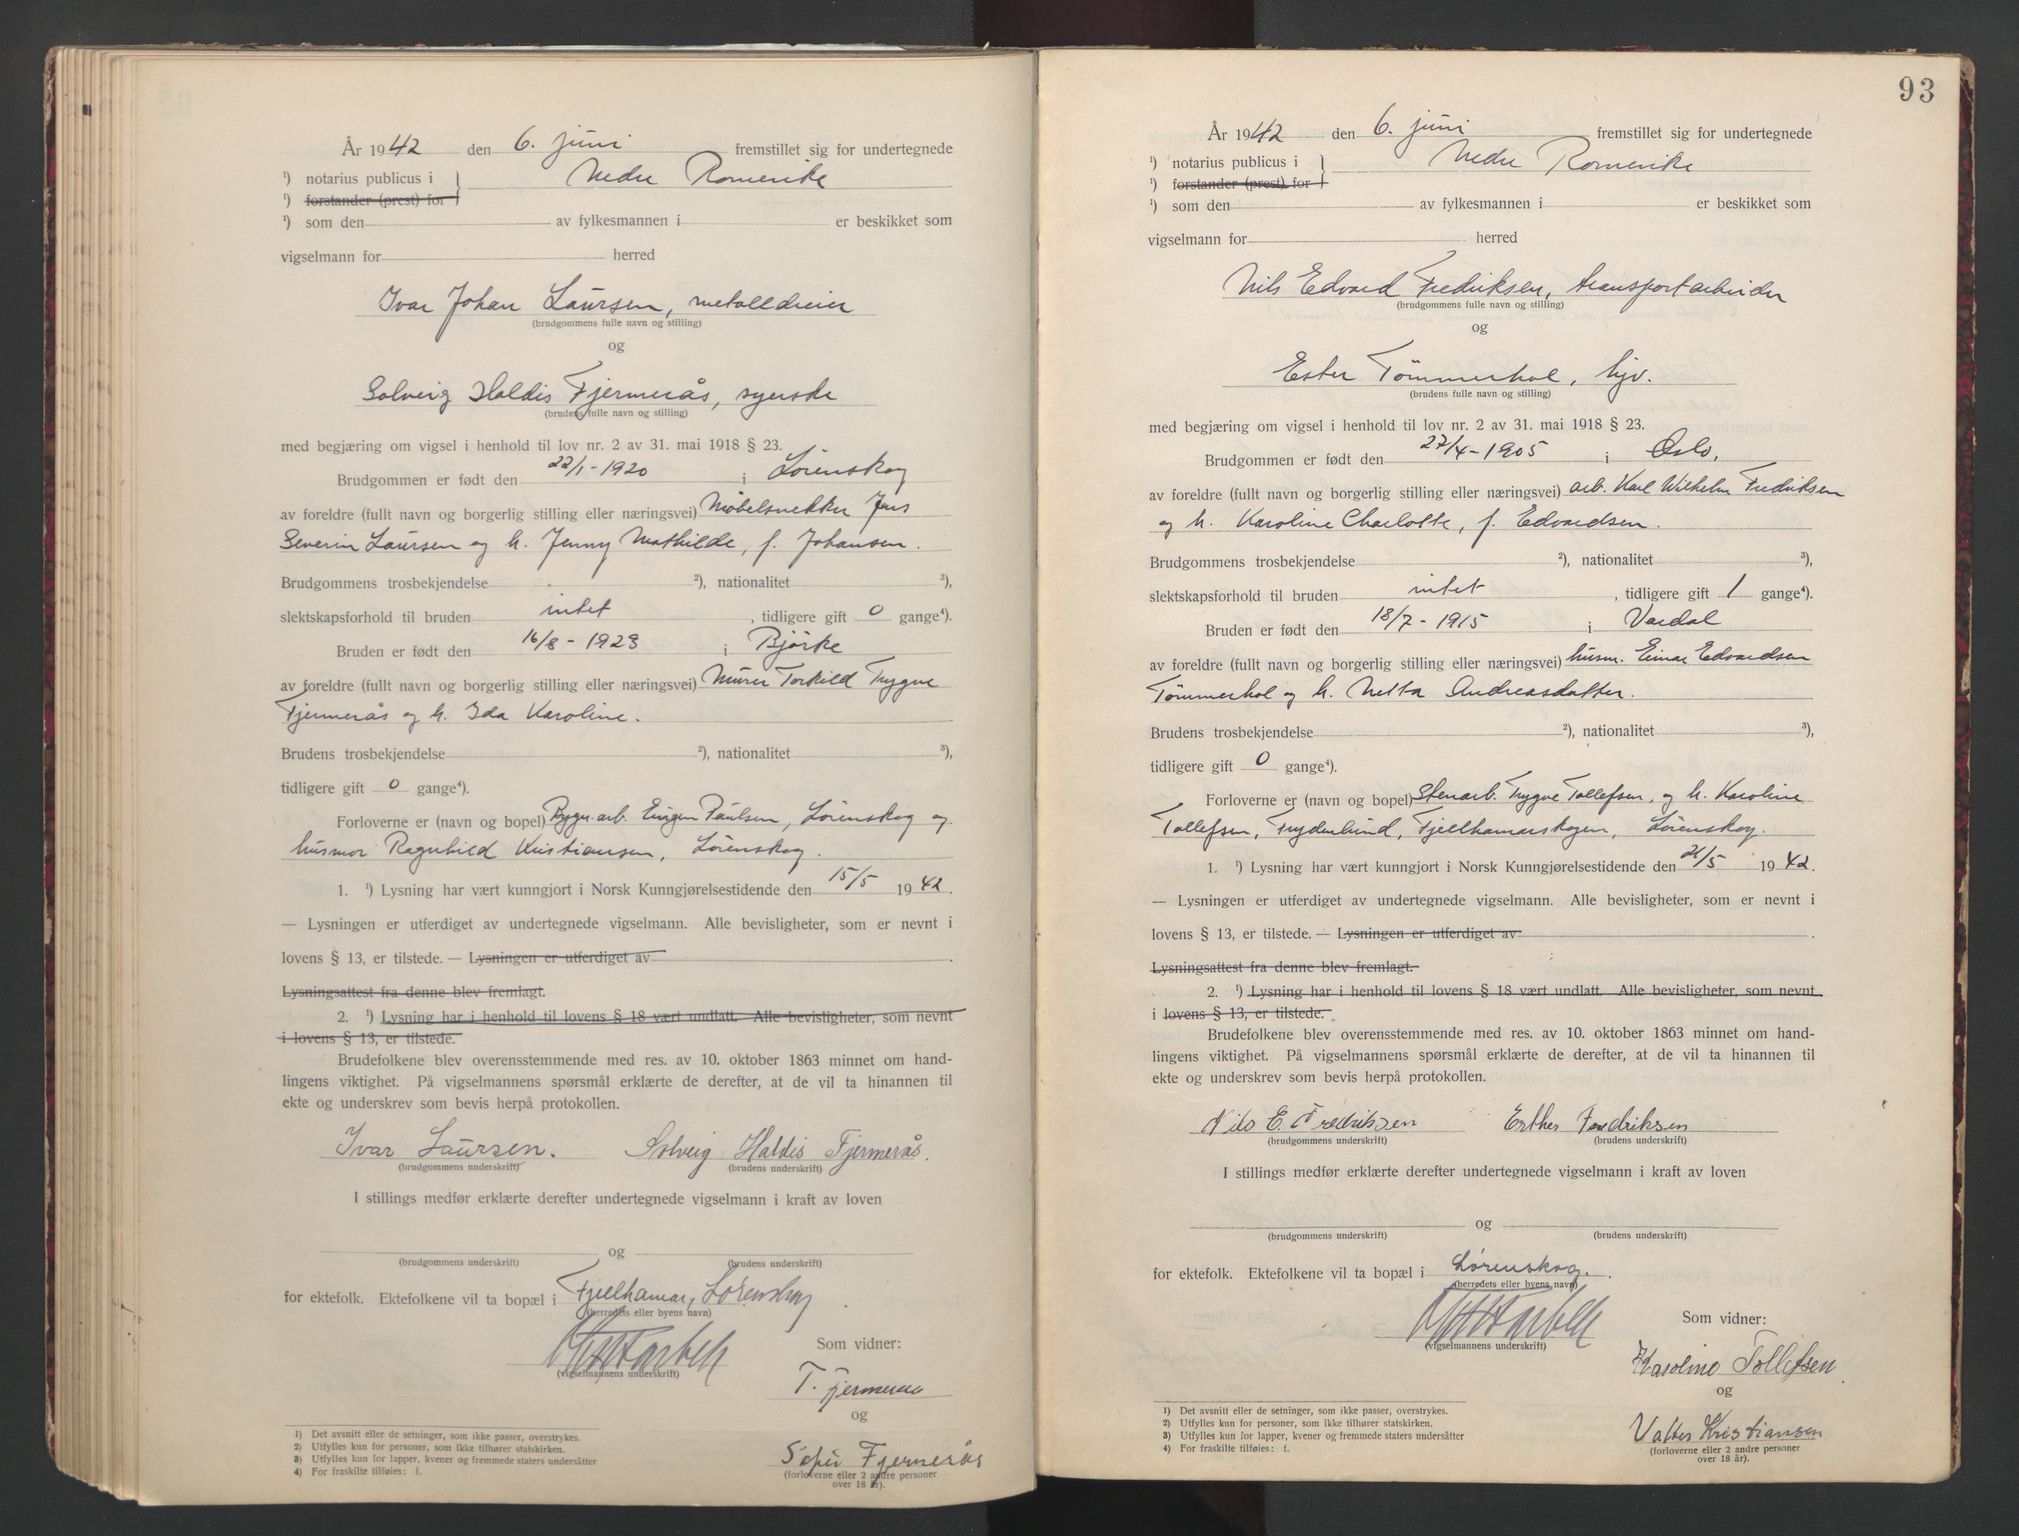 År 1942 den 6. juni fremstillet sig for undertegnede
¹) notarius publicus i } Nedre Romerike
¹) forstander (prest) for }
¹) som den av fylkesmannen i er beskikket som
vigselmann for herred
Ivar Johan Laursen, metalldreier
(brudgommens fulle navn og stilling)
og
Solveig Haldis Fjermerås, syerske
(brudens fulle navn og stilling)
med begjæring om vigsel i henhold til lov nr. 2 av 31. mai 1918 § 23.
Brudgommen er født den 22/1-1920 i Lørenskog
av foreldre (fullt navn og borgerlig stilling eller næringsvei) Møbelsnekker Jens
Severin Laursen og h. Jenny Mathilde, f. Johansen.
Brudgommens trosbekjendelse ²), nationalitet ³),
slektskapsforhold til bruden intet, tidligere gift 0 gange⁴).
Bruden er født den 16/8-1923 i Bjørke
av foreldre (fullt navn og borgerlig stilling eller næringsvei) Murer Torkild Trygve
Fjermerås og h. Ida Karoline.
Brudens trosbekjendelse ²), nationalitet ³),
tidligere gift 0 gange⁴).
Forloverne er (navn og bopel) Bygn.arb. Eugen Paulsen, Lørenskog og
husmor Ragnhild Kristiansen, Lørenskog.
1. ¹) Lysning har vært kunngjort i Norsk Kunngjørelsestidende den 15/5 1942.
— Lysningen er utferdiget av undertegnede vigselmann. Alle bevisligheter, som er nevnt i
lovens § 13, er tilstede. — Lysningen er utferdiget av
Lysningsattest fra denne blev fremlagt.
2. ¹) Lysning har i henhold til lovens § 18 vært undlatt. Alle bevisligheter, som nevnt
i lovens § 13, er tilstede.
Brudefolkene blev overensstemmende med res. av 10. oktober 1863 minnet om hand-
lingens viktighet. På vigselmannens spørsmål erklærte de derefter, at de vil ta hinannen til
ekte og underskrev som bevis herpå protokollen.
Ivar Laursen. Solveig Haldis Fjermerås.
(brudgommens underskrift) (brudens underskrift)
I stillings medfør erklærte derefter undertegnede vigselmann i kraft av loven
og
(brudgommens underskrift) (brudens underskrift)
for ektefolk. Ektefolkene vil ta bopæl i Fjellhamar, Lørenskog.
(herredets eller byens navn)
Som vidner:
(vigselmannens underskrift)
T. Fjermerås
og
Fjermerås
(forloverne eller 2 andre personer
over 18 år).
1) Det avsnitt eller de setninger, som ikke passer, overstrykes.
2) Utfylles kun for personer, som ikke tilhører statskirken.
3) Utfylles kun for lapper, kvener og fremmede staters undersåtter
4) For fraskilte tilføies: f.
93
År 1942 den 6. juni fremstillet sig for undertegnede
¹) notarius publicus i } Nedre Romerike
¹) forstander (prest) for }
¹) som den av fylkesmannen i er beskikket som
vigselmann for herred
Nils Edvard Fredriksen, transportarbeider
(brudgommens fulle navn og stilling)
og
Ester Tømmerhol, hjv.
(brudens fulle navn og stilling)
med begjæring om vigsel i henhold til lov nr. 2 av 31. mai 1918 § 23.
Brudgommen er født den 27/4-1905 i Oslo,
av foreldre (fullt navn og borgerlig stilling eller næringsvei) arb. Karl Wilhelm Fredriksen
og h. Karoline Charlotte, f. Edvardsen.
Brudgommens trosbekjendelse ²), nationalitet ³),
slektskapsforhold til bruden intet, tidligere gift 1 gange⁴).
Bruden er født den 18/7-1915 i Vardal
av foreldre (fullt navn og borgerlig stilling eller næringsvei) husm. Einar Edvardsen
Tømmerhol og h. Netta Andreasdatter.
Brudens trosbekjendelse ²), nationalitet ³),
tidligere gift 0 gange⁴).
Forloverne er (navn og bopel) Stenarb. Trygve Tollefsen, og h. Karoline
Tollefsen, Frydenlund, Fjellhamarskogen, Lørenskog.
1. ¹) Lysning har vært kunngjort i Norsk Kunngjørelsestidende den 21/5 1942.
— Lysningen er utferdiget av undertegnede vigselmann. Alle bevisligheter, som er nevnt i
lovens § 13, er tilstede. — Lysningen er utferdiget av
Lysningsattest fra denne blev fremlagt.
2. ¹) Lysning har i henhold til lovens § 18 vært undlatt. Alle bevisligheter, som nevnt
i lovens § 13, er tilstede.
Brudefolkene blev overensstemmende med res. av 10. oktober 1863 minnet om hand-
lingens viktighet. På vigselmannens spørsmål erklærte de derefter, at de vil ta hinannen til
ekte og underskrev som bevis herpå protokollen.
Nils E. Fredriksen Esther Fredriksen
(brudgommens underskrift) (brudens underskrift)
I stillings medfør erklærte derefter undertegnede vigselmann i kraft av loven
og
(brudgommens underskrift) (brudens underskrift)
for ektefolk. Ektefolkene vil ta bopæl i Lørenskog.
(herredets eller byens navn)
Som vidner:
(vigselmannens underskrift)
Karoline Tollefsen
og
Valter Kristiansen
(forloverne eller 2 andre personer
over 18 år).
1) Det avsnitt eller de setninger, som ikke passer, overstrykes.
2) Utfylles kun for personer, som ikke tilhører statskirken.
3) Utfylles kun for lapper, kvener og fremmede staters undersåtter
4) For fraskilte tilføies: f.